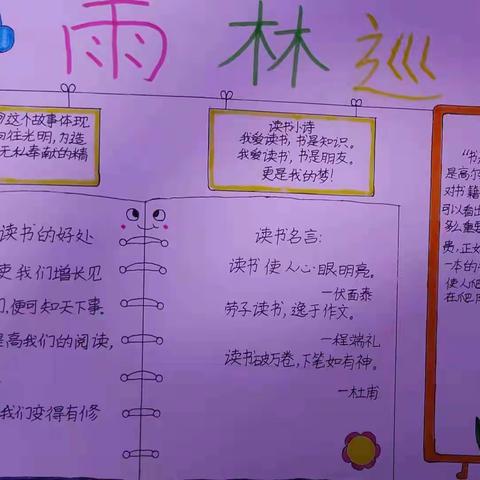 雨林巡
这个故事体现
向往光明,为造
无私奉献的精
读书小诗
我爱读书,书是知识。
我爱读书,书是朋友。
更是我的梦!
读书的好处
使我们增长见
门,便可知天下事。
提高我们的阅读,
我们变得有修
读书名言:
读书使人心·眼明亮。
—伏面泰
劳于读书,逸于作文。
—程端礼
读书破万卷,下笔如有神。
—杜甫
“书
是高尔
对书籍
可以看出
多么重要
贵,正如
一本的书
使人爬
在爬